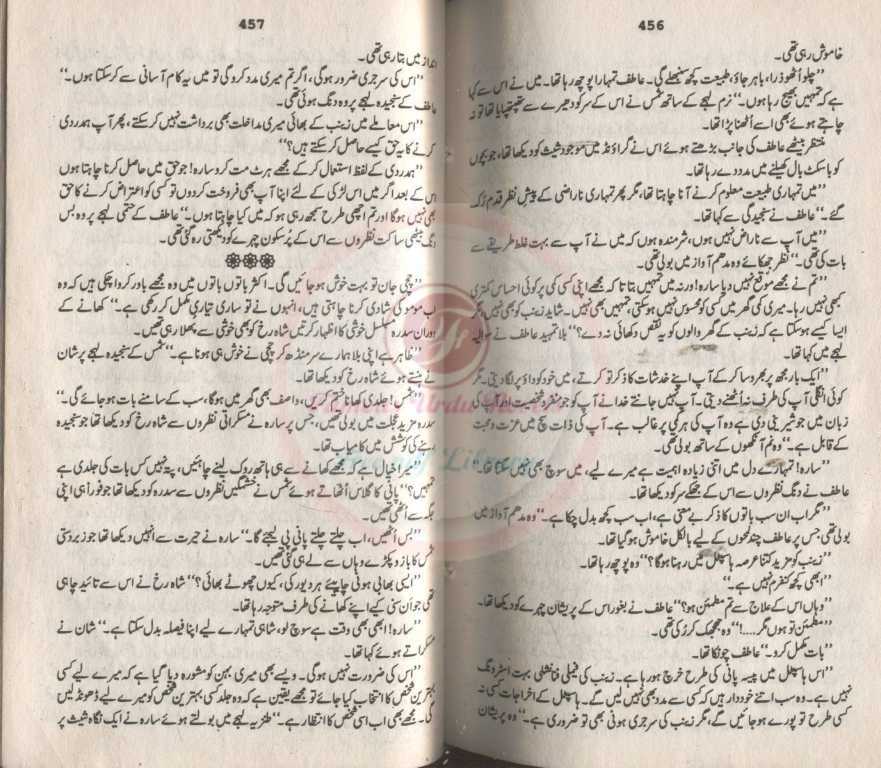 456
خاموش رہی تھی۔
’’چلو اُٹھو ذرا، باہر جاؤ، طبیعت کچھ سنبھلے گی۔ عاطف تمہارا پوچھ رہا تھا۔ میں نے اس سے کہا
ہے کہ تمہیں بھیج رہا ہوں۔‘‘ نرم لہجے کے ساتھ شمس نے اس کے سر کو دھیرے سے تھپتھپایا تھا تو نہ
چاہتے ہوئے بھی اسے اُٹھنا پڑا تھا۔
منتظر بیٹھے عاطف کی جانب بڑھتے ہوئے اس نے گراؤنڈ میں موجود شیث کو دیکھا تھا، جو بچوں
کو باسکٹ بال کھیلنے میں مدد دے رہا تھا۔
’’میں تمہاری طبیعت معلوم کرنے آنا چاہتا تھا، مگر پھر تمہاری ناراضی کے پیش نظر قدم رُک
گئے۔‘‘ عاطف نے سنجیدگی سے کہا تھا۔
’’میں آپ سے ناراض نہیں ہوں، شرمندہ ہوں کہ میں نے آپ سے بہت غلط طریقے سے
بات کی تھی۔‘‘ نظر جھکائے وہ مدھم آواز میں بولی تھی۔
’’تم نے مجھے موقع نہیں دیا سارہ! ورنہ میں تمہیں بتاتا کہ مجھے اپنی کسی کمی پر کوئی احساس کمتری
کبھی نہیں رہا۔ میری کمی گھر میں کسی کو محسوس نہیں ہو سکتی، تمہیں بھی نہیں۔ شاید زینب کو بھی نہیں، مگر
ایسا کیسے ہو سکتا ہے کہ زینب کے گھر والوں کو یہ نقص دکھائی نہ دے؟‘‘ بلا تمہید عاطف نے سوالیہ
لہجے میں کہا تھا۔
’’ایک بار مجھ پر بھروسا کر کے آپ اپنے خدشات کا ذکر تو کرتے، میں خود کو داؤ پر لگا دیتی۔ مگر
کوئی انگلی آپ کی طرف نہ اُٹھنے دیتی۔ آپ نہیں جانتے خدا نے آپ کو جو منفرد شخصیت اور آپ کی
زبان میں جو شیرینی دی ہے وہ آپ کی ہر کمی پر غالب ہے۔ آپ کی ذات سچ میں عزت و محبت
کے قابل ہے۔‘‘ وہ نم آنکھوں کے ساتھ بولی تھی۔
’’سارہ! تمہارے دل میں اتنی زیادہ اہمیت ہے میرے لیے، میں سوچ بھی نہیں سکتا تھا۔‘‘
عاطف نے دنگ نظروں سے اس کے جھکے سر کو دیکھا تھا۔
’’مگر اب ان سب باتوں کا ذکر بے معنی ہے، اب سب کچھ بدل چکا ہے۔‘‘ وہ مدھم آواز میں
بولی تھی جس پر عاطف چند لمحوں کے لیے بالکل خاموش ہو گیا تھا۔
’’زینب کو مزید کتنا عرصہ ہاسپٹل میں رہنا ہو گا؟‘‘ وہ پوچھ رہا تھا۔
’’ابھی کچھ کنفرم نہیں ہے۔‘‘
’’وہاں اس کے علاج سے تم مطمئن ہو؟‘‘ عاطف نے بغور اس کے پریشان چہرے کو دیکھا تھا۔
’’مطمئن تو ہوں مگر.....!‘‘ وہ جھجک کر رُکی تھی۔
’’بات مکمل کرو۔‘‘ عاطف چونکا تھا۔
’’اس ہاسپٹل میں پیسہ پانی کی طرح خرچ ہو رہا ہے۔ زینب کی فیملی فنانشلی بہت اسٹرونگ
نہیں ہے۔ وہ سب اتنے خوددار ہیں کہ کسی سے مدد بھی نہیں لیں گے۔ ہاسپٹل کے اخراجات کسی نہ
کسی طرح تو پورے ہو جائیں گے، مگر زینب کی سرجری ہونی بھی تو ضروری ہے۔‘‘ وہ پریشان
457
انداز میں بتا رہی تھی۔
’’اس کی سرجری ضرور ہو گی، اگر تم میری مدد کرو گی تو میں یہ کام آسانی سے کر سکتا ہوں۔‘‘
عاطف کے سنجیدہ لہجے پر وہ دنگ ہوئی تھی۔
’’اس معاملے میں زینب کے بھائی میری مداخلت بھی برداشت نہیں کر سکتے، پھر آپ ہمدردی
کرنے کا یہ حق کیسے حاصل کر سکتے ہیں؟‘‘
’’ہمدردی کے لفظ استعمال کر کے مجھے ہرٹ مت کرو سارہ! جو حق میں حاصل کرنا چاہتا ہوں
اس کے بعد اگر میں اس لڑکی کے لئے اپنا آپ بھی فروخت کر دوں تو کسی کو اعتراض کرنے کا حق
بھی نہیں ہو گا اور تم اچھی طرح سمجھ رہی ہو کہ میں کیا چاہتا ہوں۔‘‘ عاطف کے حتمی لہجے پر وہ بس
دنگ بیٹھی ساکت نظروں سے اس کے پُرسکون چہرے کو دیکھتی رہ گئی تھی۔
’’چچی جان تو بہت خوش ہو جائیں گی۔ اکثر باتوں باتوں میں وہ مجھے باور کروا چکی ہیں کہ وہ
اب مومو کی شادی کرنا چاہتی ہیں، انہوں نے تو ساری تیاری مکمل کر رکھی ہے۔‘‘ کھانے کے
دوران سدرہ مسلسل خوشی کا اظہار کرتیں شاہ رخ کو بھی خوشی سے پھلا رہی تھیں۔
’’ظاہر ہے اپنی بلا ہمارے سر منڈھ کر چچی نے خوش ہی ہونا ہے۔‘‘ شمس کے سنجیدہ لہجے پر شان
نے ہنستے ہوئے شاہ رخ کو دیکھا تھا۔
’’شمس! جلدی کھانا ختم کریں، واصف بھی گھر میں ہو گا، سب کے سامنے بات ہو جائے گی۔‘‘
سدرہ مزید عجلت میں بولی تھیں، جس پر سارہ نے مسکراتی نظروں سے شاہ رخ کو دیکھا تھا جو سنجیدہ
رہنے کی کوشش میں کامیاب تھا۔
’’میرا خیال ہے کہ مجھے کھانے سے ہی ہاتھ روک لینے چاہئیں، پتہ نہیں کس بات کی جلدی ہے
تمہیں؟‘‘ پانی کا گلاس اُٹھاتے ہوئے شمس نے خشمگیں نظروں سے سدرہ کو دیکھا تھا جو فوراً ہی اپنی
جگہ سے اُٹھی تھیں۔
’’بس اُٹھیں، اب چلتے چلتے پانی پی لیجئے گا۔‘‘ سارہ نے حیرت سے انہیں دیکھا تھا جو زبردستی
شمس کا بازو پکڑے وہاں سے لے ہی گئی تھیں۔
’’ایسی بھابی ہونی چاہئے ہر دیور کی، کیوں چھوٹے بھائی؟‘‘ شاہ رخ نے اس سے تائید چاہی
تھی جو اَن سنی کیے اپنے کھانے کی طرف متوجہ رہا تھا۔
’’سارہ! ابھی بھی وقت ہے سوچ لو، شاہی تمہارے لیے اپنا فیصلہ بدل سکتا ہے۔‘‘ شان نے
مسکراتے ہوئے کہا تھا۔
’’اس کی ضرورت نہیں ہو گی۔ ویسے بھی میری بہن کو مشورہ دیا گیا ہے کہ میرے لیے کسی
بہترین شخص کا انتخاب کیا جائے تو مجھے یقین ہے کہ وہ جلد کسی بہترین شخص کو میرے لیے ڈھونڈ لیں
گی۔ مجھے بھی اب اسی شخص کا انتظار ہے۔‘‘ طنزیہ لہجے میں بولتے ہوئے سارہ نے ایک نگاہ شیث پر